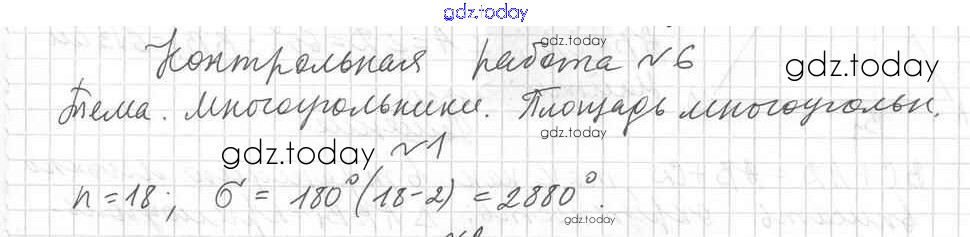 gdz.today
Контрольная работа №6
gdz.today
gdz.today
Тема. Многоугольники. Площадь многоугольн.
gdz.today
gdz.today
№1
n = 18; σ = 180°(18-2) = 2880°.
gdz.today